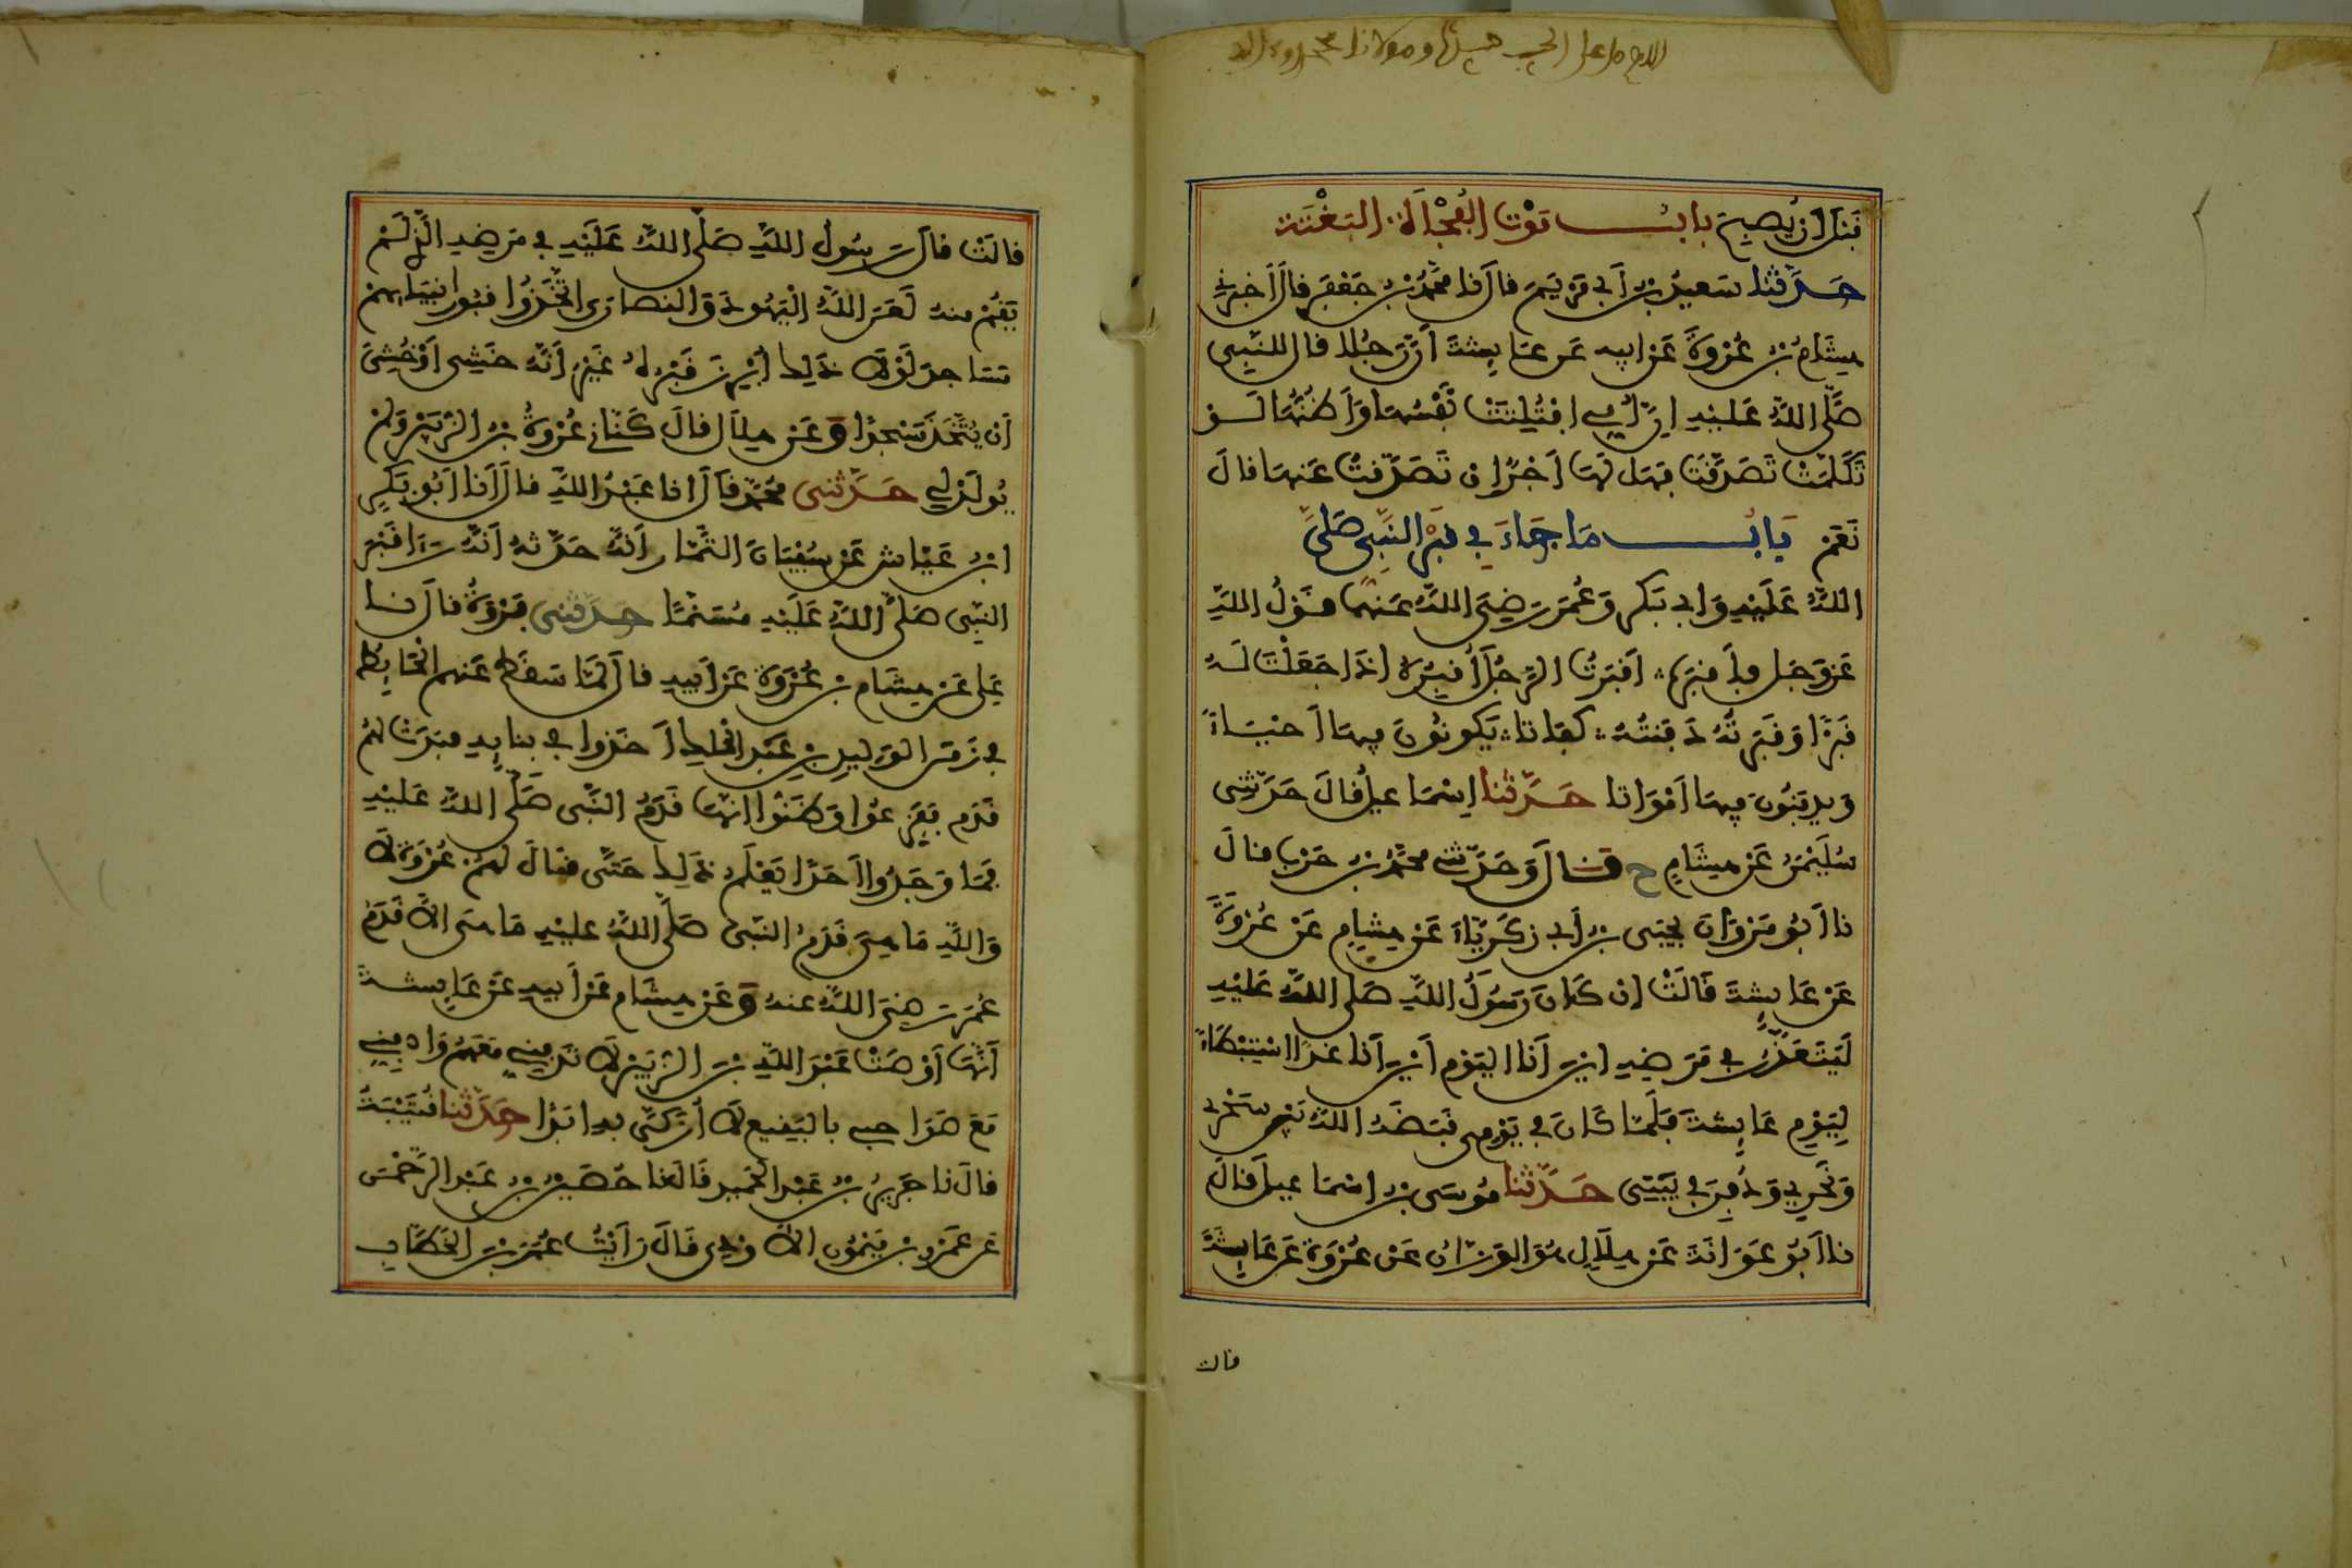 قبل أن يصبح باب موت الفجأة البغتة
حدثنا سعيد بن أبي مريم قال نا محمد بن جعفر قال أخبرني
هشام بن عروة عن أبيه عن عايشة أن رجلا قال للنبي
صلى الله عليه إن أمي افتلتت نفسها وأظنها لو
تكلمت تصدقت فهل لها أجر إن تصدقت عنها قال
نعم باب ما جاء في قبر النبي صلى
الله عليه وأبي بكر وعمر رضي الله عنهما قول الله
عز وجل فأقبره أقبرت الرجل أقبره إذا جعلت له
قبرا وقبرته دفنته كفاتا يكونون فيها أحياء
ويدفنون فيها أمواتا حدثنا إسماعيل قال حدثني
سليمن عن هشام ح قال وحدثني محمد بن حرب قال
نا أبو مروان يحيى بن أبي زكرياء عن هشام عن عروة
عن عايشة قالت إن كان رسول الله صلى الله عليه
ليتعذر في مرضه أين أنا اليوم أين أنا غدا استبطاء
ليوم عايشة فلما كان في يومي قبضه الله بين سحري
ونحري ودفن في بيتي حدثنا موسى بن إسماعيل قال
نا أبو عوانة عن هلال هو الوزان عن عروة عن عايشة
قالت
قالت قال رسول الله صلى الله عليه في مرضه الذي لم
يقم منه لعن الله اليهود والنصارى اتخذوا قبور أنبيايهم
مساجد لولا ذلك أبرز قبره غير أنه خشي أو خشي
أن يتخذ مسجدا وعن هلال قال كناني عروة بن الزبير ولم
يولد لي حدثني محمد قال انا عبد الله قال أنا أبو بكر
ابن عياش عن سفيان التمار أنه حدثه أنه رءا قبر
النبي صلى الله عليه مسنما حدثني فروة قال نا
علي عن هشام بن عروة عن أبيه قال لما سقط عنهم الحايط
في زمن الوليد بن عبد الملك أخذوا في بنايه فبدت لهم
قدم ففزعوا وظنوا أنها قدم النبي صلى الله عليه
فما وجدوا أحدا يعلم ذلك حتى قال لهم عروة لا
والله ما هي قدم النبي صلى الله عليه ما هي إلا قدم
عمر رضي الله عنه وعن هشام عن أبيه عن عايشة
أنها أوصت عبد الله بن الزبير لا تدفني معهم وادفني
مع صواحبي بالبقيع لا أزكى به أبدا حدثنا قتيبة
قال نا جرير بن عبد الحميد قال نا حصين بن عبد الرحمن
عن عمرو بن ميمون الأودي قال رأيت عمر بن الخطاب